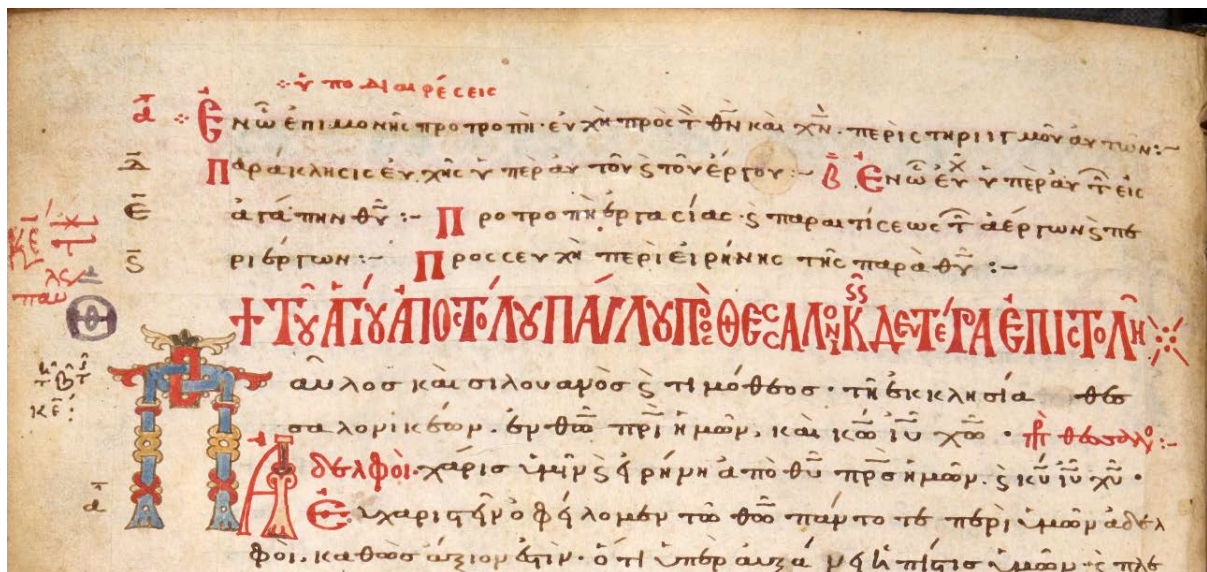 ὑποδιαιρέσεις
α Ἐν ὧ ἐπιμονῆς προτροπὴ · εὐχὴ πρὸς τ θν καὶ χν · περὶ στηριγμὸν αὐτῶν :~
Παράκλησις εὐχῆς ὑπὲρ αὐτοῦ ϛ τοῦ ἔργου :~ β Ἐν ὧ εὐχ ὑπὲρ αὐτ εἰς
ε ἀγάπην θυ :~ Προτροπὴ ἐργασίας · ϛ παραιτίσεως τ ἀέργων ϛ πε
ϛ ριέργων :~ Προσσευχὴ περὶ εἰρήνης τῆς παρὰ θυ :~
+ ΤΟΥ ΑΓΙΟΥ ΑΠΟΣΤΟΛΟΥ ΠΑΥΛΟΥ ΠΡΟΣ ΘΕΣΣΑΛΟΝΙΚ ΔΕΥΤΕΡΑ ΕΠΙΣΤΟΛΗ
Παυλος καὶ σιλουανὸς ϛ τιμόθεος · τῆ ἐκκλησία θεσ
σαλονικέων · ἐν θω πρι ἡμῶν, καὶ κω ιυ χω ·
Ἀδελφοὶ · χάρις ὑμῖν ϛ εἰρήνη ἀπὸ θυ πρς ἡμῶν · ϛ κυ ιυ χυ ·
α Εὐχαριστεῖν ὀφείλομεν τῶ θω πάντοτε περὶ ὑμῶν ἀδελ
φοὶ, καθὼς ἄξιον ἐστὶν · ὅτι ὑπεραυξάνει ἡ πίστις ὑμῶν · ϛ πλε